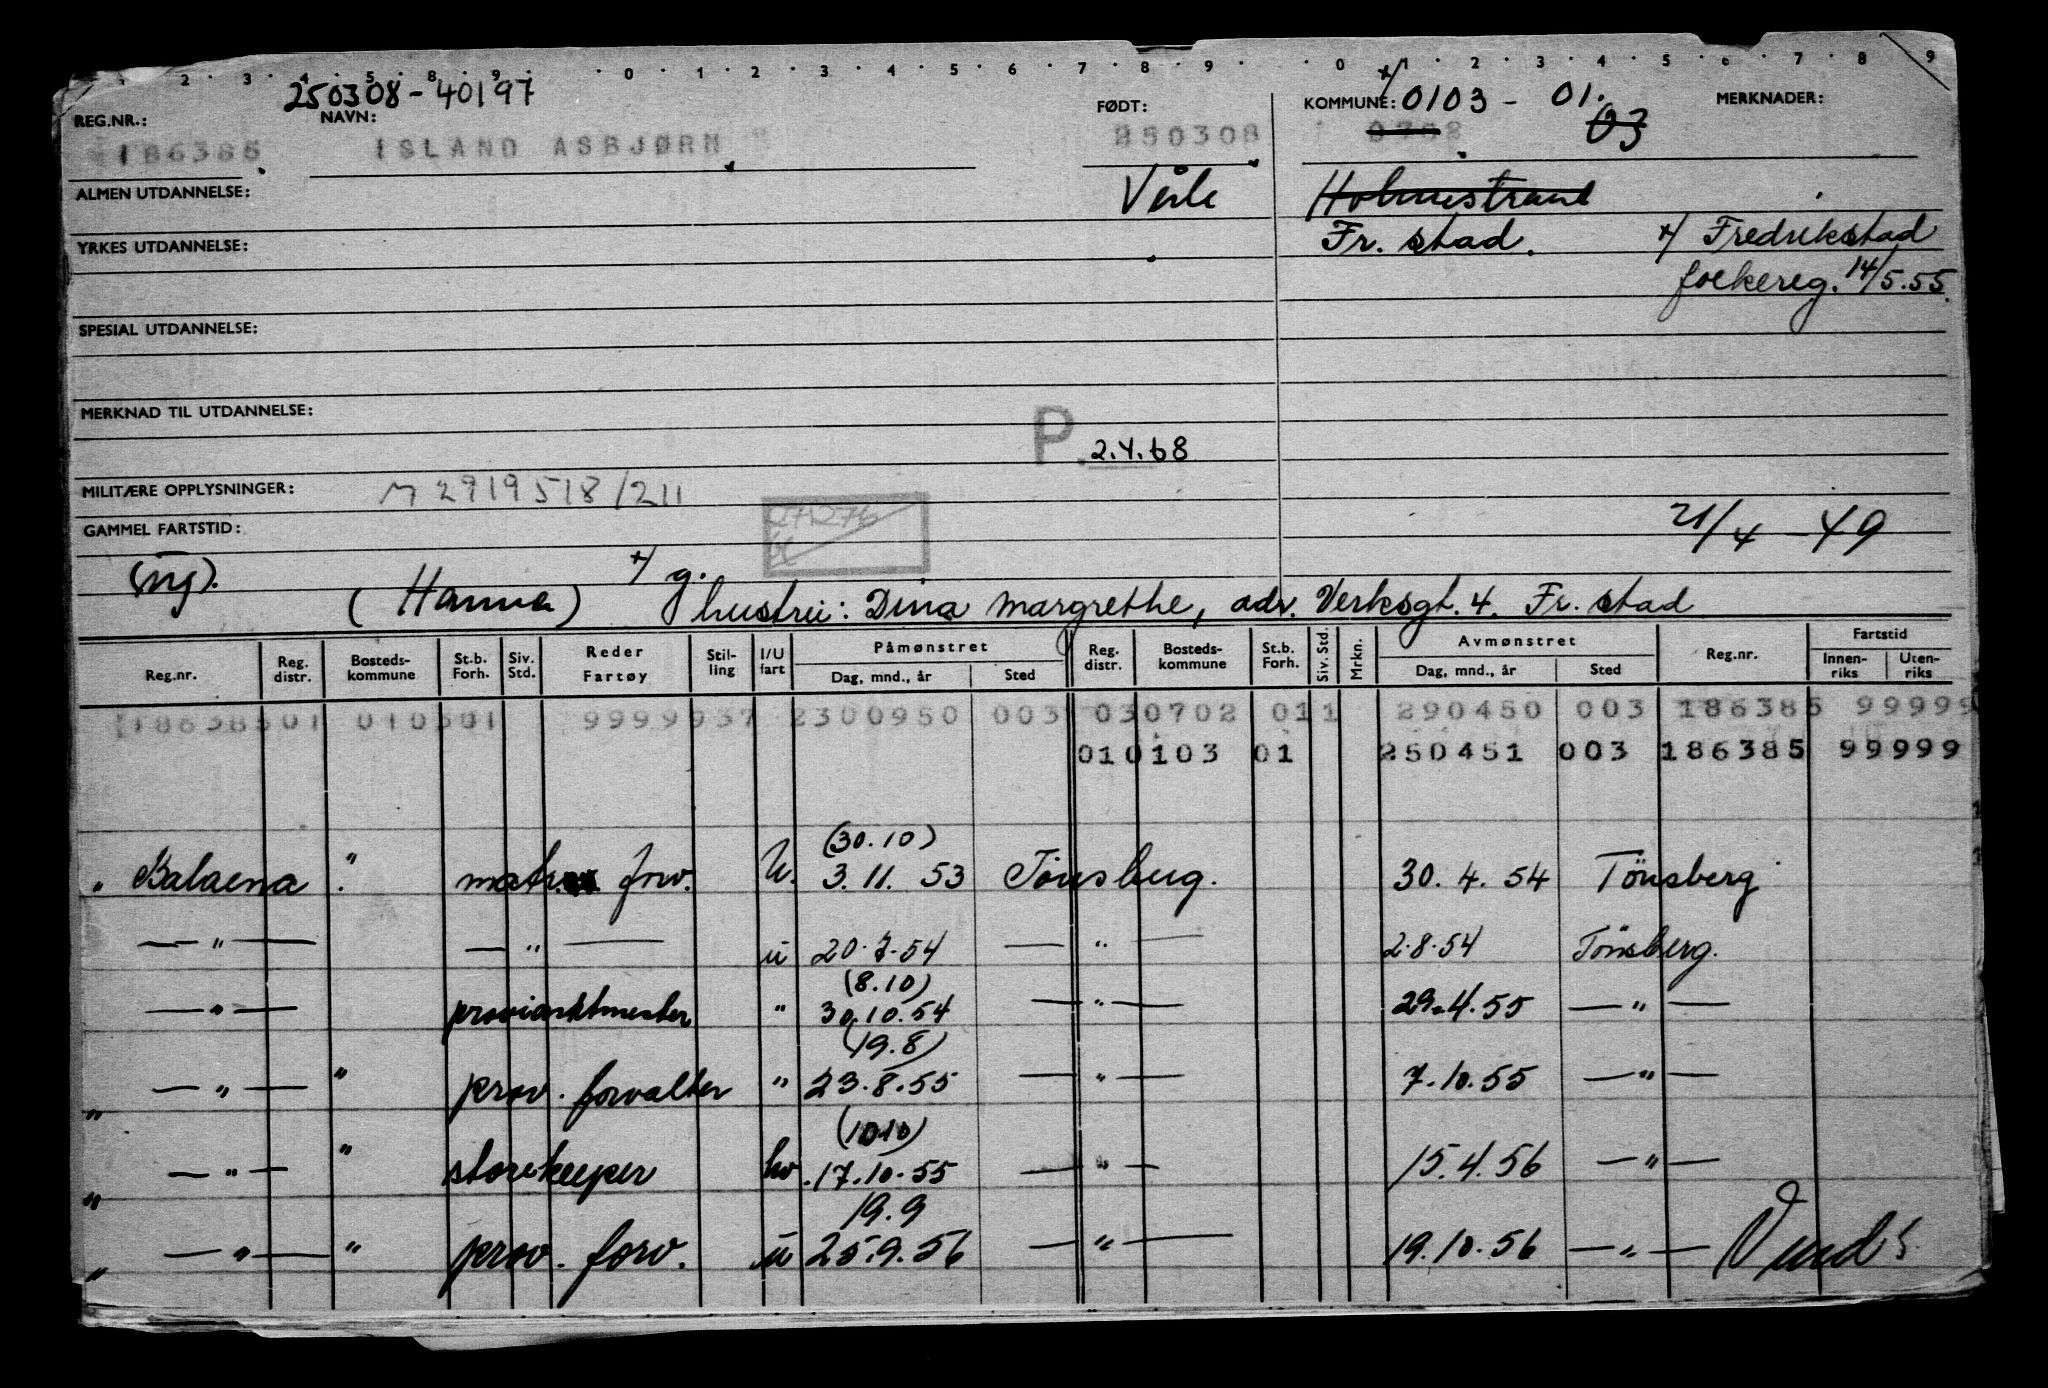 1 . 2 . 3 . 4 . 5 . 8 . 9 . . 0 . 1 . 2 . 3 . 4 . 5 . 6 . 7 . 8 . 9 . . . 0 . 1 . 2 . 3 . 4 . 5 . 6 . 7 . 8 . 9
250308-40197 x/ 0103 - 01.
REG.NR.: NAVN: FØDT: KOMMUNE: 03 MERKNADER:
186385 ISLAND ASBJØRN 250308 0702
ALMEN UTDANNELSE: Veile Holmestrand
YRKES UTDANNELSE: Fr. stad. x/ Fredrikstad
folkereg. 14/5.55.
SPESIAL UTDANNELSE:
MERKNAD TIL UTDANNELSE:
P. 2.4.68
MILITÆRE OPPLYSNINGER: M 2919518/211
GAMMEL FARTSTID: 271276 21/4 - 49
(ng). x/ g.
(Hanna) hustru: Dina Margrethe, adr. Verksgt. 4. Fr. stad
Reg.nr. Reg. distr. Bosteds-kommune St.b. Forh. Siv. Std. Reder Fartøy Stil-ling I/U fart Påmønstret Dag, mnd., år Sted Reg. distr. Bosteds-kommune St.b. Forh. Siv. Std. Mrkn. Avmønstret Dag, mnd., år Sted Reg.nr. Fartstid Innen-riks Uten-riks
18638501 010301 9999937 2300950 003 030702 011 290450 003 186385 99999
010103 01 250451 003 186385 99999
(30.10)
" Balaena " forv. U. 3.11.53 Tönsberg. 30.4.54 Tönsberg
— " — — " — u 20.7.54 — " — 2.8.54 Tönsberg.
(8.10)
— " — proviantmester " 30.10.54 — " — 29.4.55 — " —
(19.8)
" — " — " prov. forvalter " 23.8.55 — " — 7.10.55 — " —
(10.10)
" — " — " storekeeper hv. 17.10.55 — " — 15.4.56 — " —
19.9
" — " — " prov. forv. u 25.9.56 — " — 19.10.56 — " — Vend